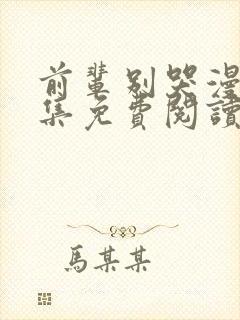 前輩別哭漫
集免費閱讀
馬某某